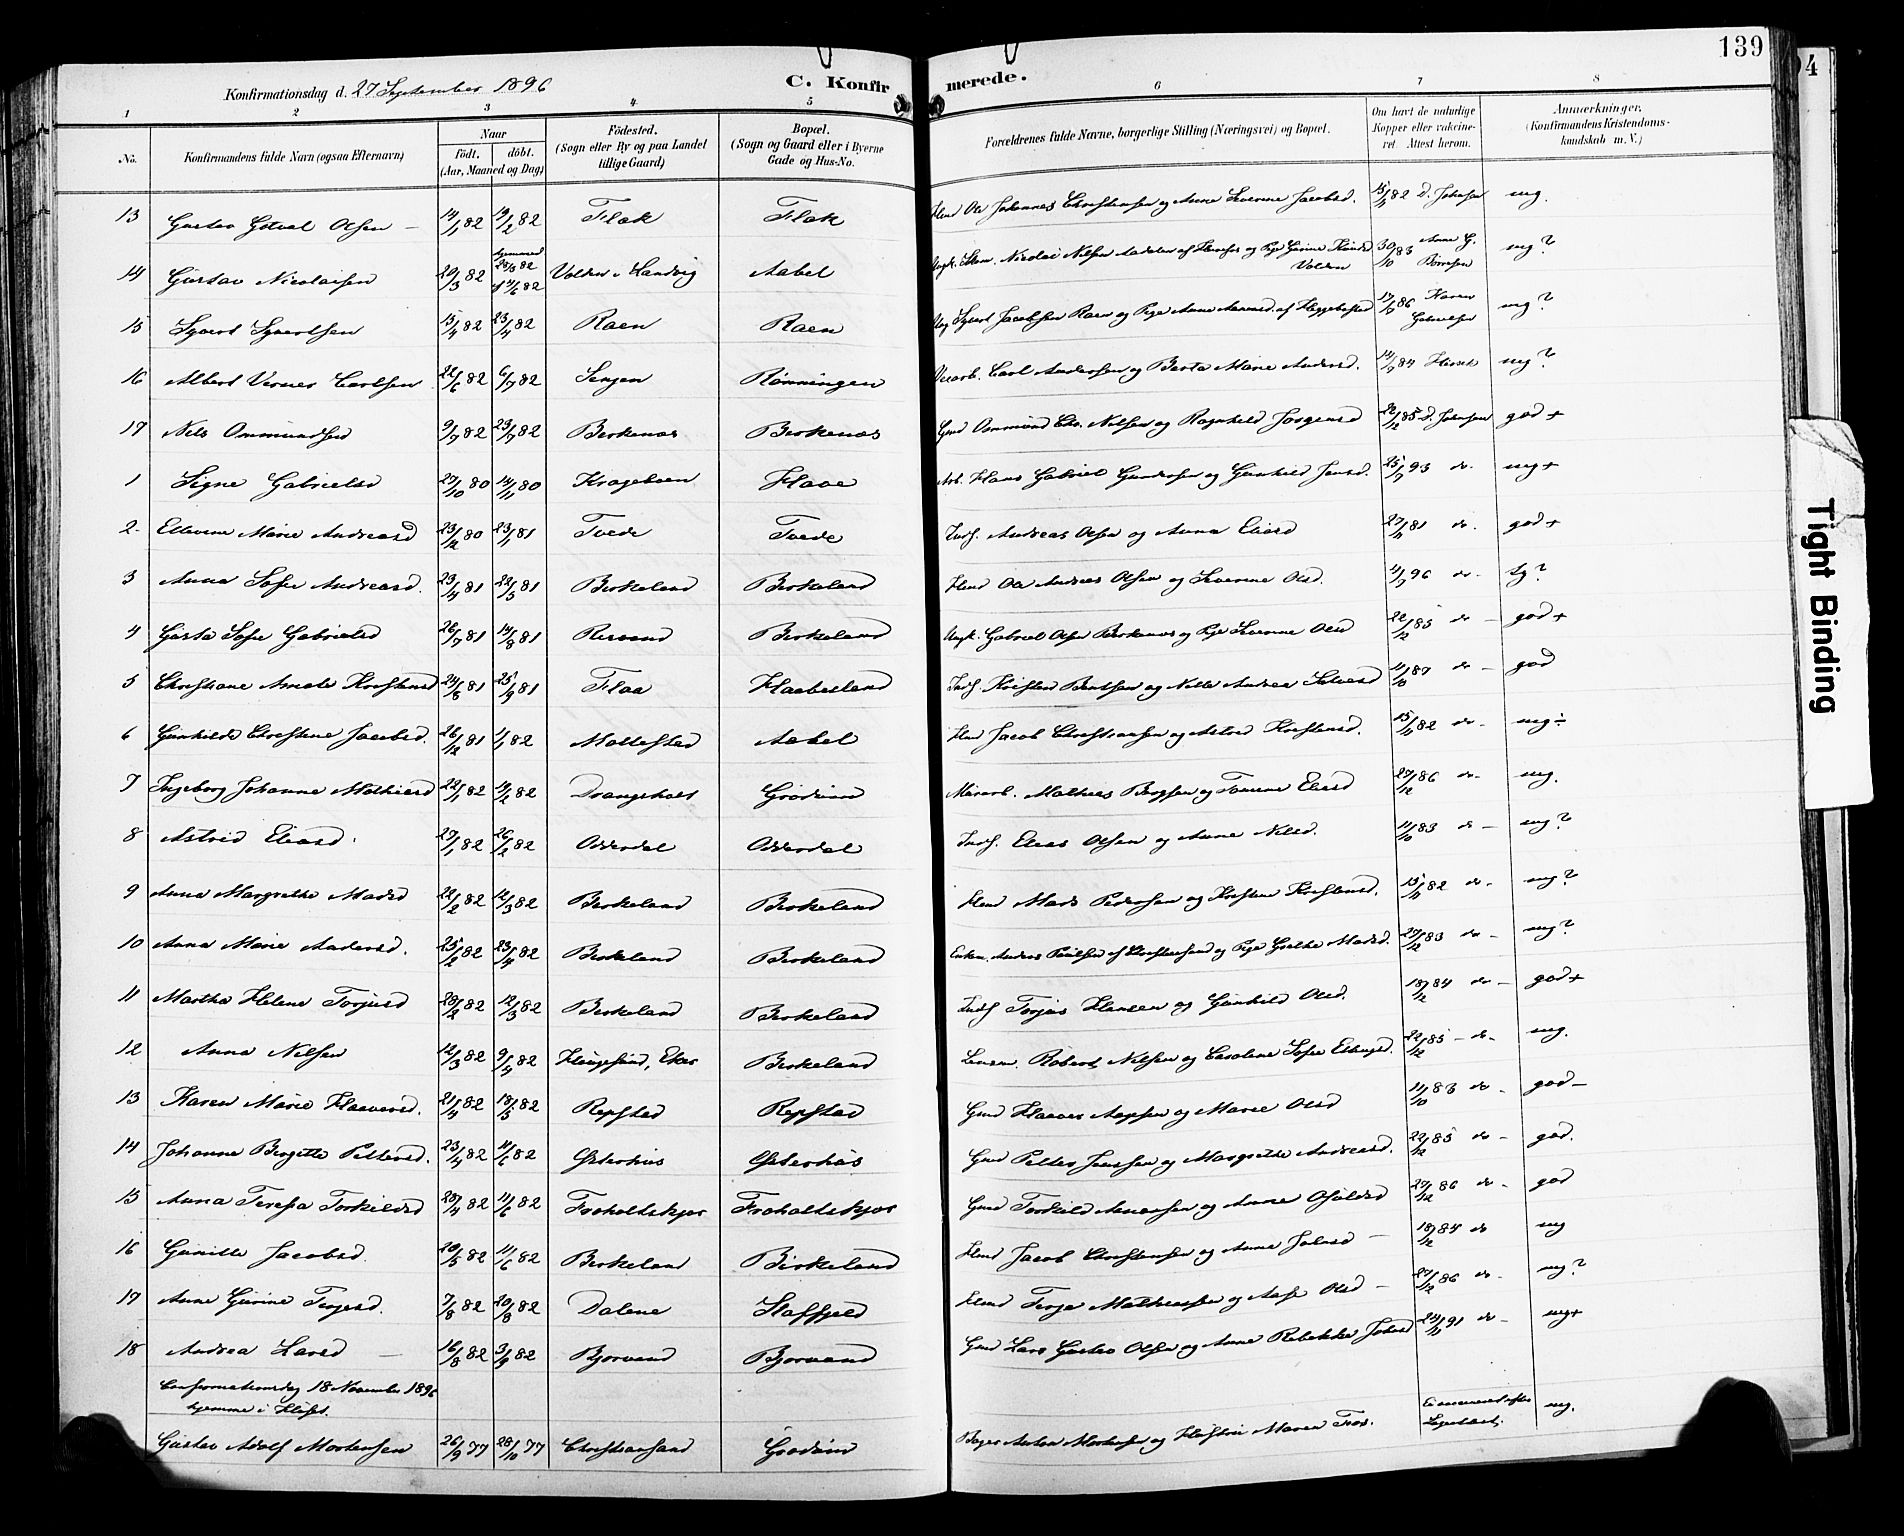 139
Konfirmationsdag d. 27 September 1896
C. Konfirmerede.
1 2 3 4 5 6 7 8
No. Konfirmandens fulde Navn (ogsaa Efternavn) Naar født. døbt. (Aar, Maaned og Dag) Fødested. (Sogn eller By og paa Landet tillige Gaard) Bopæl. (Sogn og Gaard eller i Byerne Gade og Hus-No. Forældrenes fulde Navne, borgerlige Stilling (Næringsvei) og Bopæl. Om havt de naturlige Kopper eller vakcineret. Attest herom. Anmærkninger. (Konfirmandens Kristendomskundskab m. V.)
13 Gustav Olsen 14/1 82 19/2 82 Flak Flak Ole Johannes Christensen og Anne Severine Jacobsd. 15/11 82 D. Johnsen mg.
14 Gustav Nicolaisen 20/3 82 Volden i Landvig Aabel Nicolai Nilsen og Pige Gurine Volden 30/10 83 Anne G. Børresen mg?
15 Syvert Syvertsen 15/4 82 23/4 82 Raen Raen Syvert Jacobsen Raen og Pige Anne af Heggebostad 86 Karen Gabrielsen mg?
16 Albert Verner Carlsen 22/6 82 6/7 82 Rønningen Carl Andersen og Berta Marie Andersd. 84 mg?
17 Nils Ommundsen 9/7 82 23/7 82 Berkenæs Berkenæs Gmd Ommund Chr. Nilsen og Ragnhild Jørgensd 22/12 85 D. Johnsen god +
1 Signe Gabrielsd 27/10 80 14/11 80 Arb. Hans Gabriel Gundersen og Gunhild Jensd. 25/7 93 do. mg+
2 Ellevine Marie Andreasd 23/12 80 23/1 81 Tvede Tvede Inds. Andreas Olsen og Anna Eliasd 81 do. god +
3 Anna Sofie Andreasd. 23/4 81 22/5 81 Birkeland Birkeland Hmd Ole Andreas Olsen og Severine Olsd. 96 do - tg?
4 Gusta Sofie Gabrielsd 26/7 81 14/8 81 Birkeland Ungk. Gabriel Olsen Berkenæs og Pige Severine Olsd 22/12 85 do - god +
5 Christiane Amalie Kristensd 24/8 81 25/9 81 Flaa Haabesland Inds. Kristen Bentsen og Nille Andrea 11/10 87 do - god
6 Gunhilde Christine Jacobsd. 26/12 81 1/1 82 Mollestad Aabel Hmd Jacob Christiansen og Astrid Kristensd. 15/11 82 do - mg÷
7 Ingeborg Johanne Mathiasd 22/1 82 19/2 82 Drangsholt Grødum Mathias og Tomine Eliasd 27/12 86 do - mg.
8 Astrid Eliasd. 27/1 82 26/2 82 Odderdal Odderdal Inds. Elias Olsen og Anne Nilsd. 11/10 83 do - mg?
9 Anna Margrethe Madsd 22/2 82 12/3 82 Birkeland Birkeland Hmd Mads Pedersen og Kristine Kristensd. 15/11 82 do - mg?
10 Anna Marie Andersd. 25/2 82 23/4 82 Birkeland Birkeland Anders Paulsen af Christiansand og Pige Grethe Madsd. 27/12 83 do - mg?
11 Martha Helene Torjusd 28/2 82 12/3 82 Birkeland Birkeland Inds Torjus Hansen og Gunhild Olsd. 18/12 84 do - god +
12 Anna Nilsen 12/3 82 9/4 82 Birkeland Robert Nilsen og Caroline Sofie 22/12 85 - do - mg.
13 Karen Marie Haaversd. 21/4 82 18/5 82 Repstad Repstad Gmd Haaver Aapsen og Marie Olsd 11/10 83 do - god -
14 Johanne Bergitte Pettersd. 23/4 82 11/6 82 Østerhus Østerhus Gmd Petter Jensen og Margrethe Andreasd. 22/12 85 do - god.
15 Anna Teresia Torkildsd 28/4 82 11/6 82 Froholtskjær Froholtskjær Gmd Torkild og Anne 27/12 86 do - god
16 Gunille Jacobsd. 20/5 82 11/6 82 Birkeland Birkeland Hmd Jacob Christensen og Anne Johnsd - 18/12 84 do mg
17 Anne Gurine Terjesd. 7/8 82 20/8 82 Dalene Hmd Terje Mathiassen og Aase Olsd - 27/12 86 do - mg?
18 Andrea Larsd - 16/8 82 3/9 82 Bjorvand Bjorvand Gmd Lars Gustav Olsen og Anne Rebekka Johnsd 91 do - mg+
Confirmationsdag 18 November 1896
hjemme i Huset.
Gustav Adolf Mortensen 26/9 77 28/10 77 Christiansand Grødum Bager Anton Mortensen og Hustru Maren mg.
Tight Binding